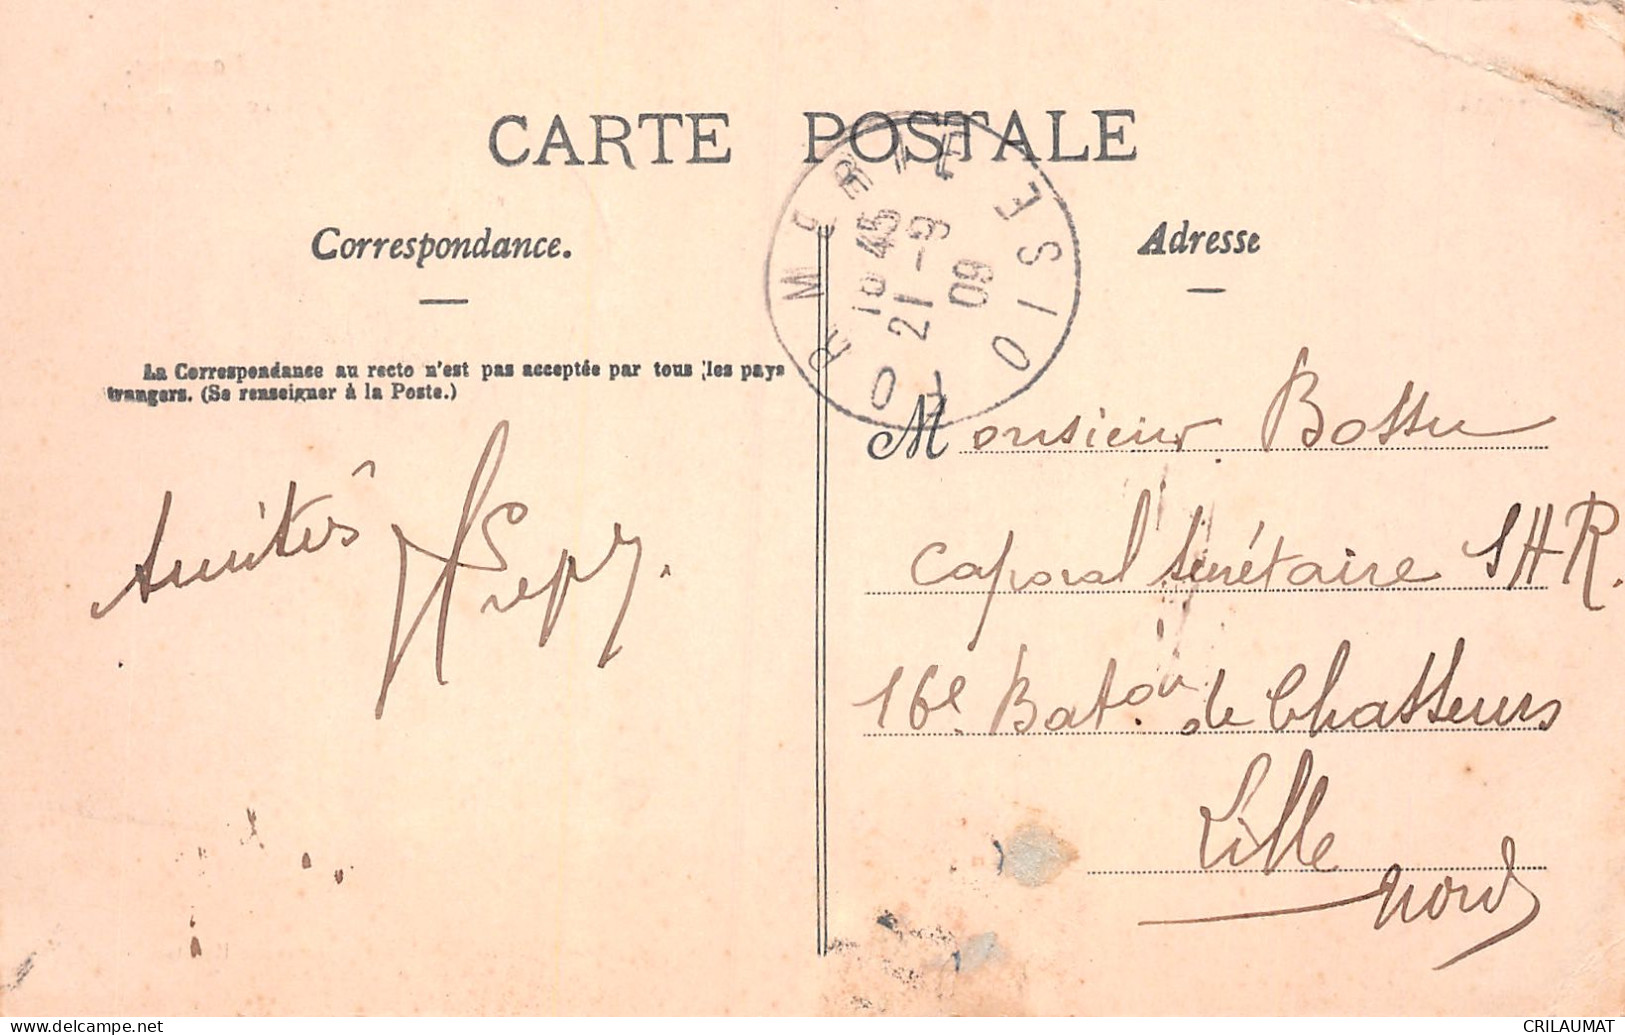 CARTE POSTALE
Correspondance.
Adresse
ORMERIE OISE
18 45
21 - 9
09
La Correspondance au recto n'est pas acceptée par tous les pays
trangers. (Se renseigner à la Poste.)
Amitiés
Monsieur Bossu
Caporal Secrétaire SHR.
16e. Baton de Chasseurs
Lille
Nord
www.delcampe.net
CRILAUMAT